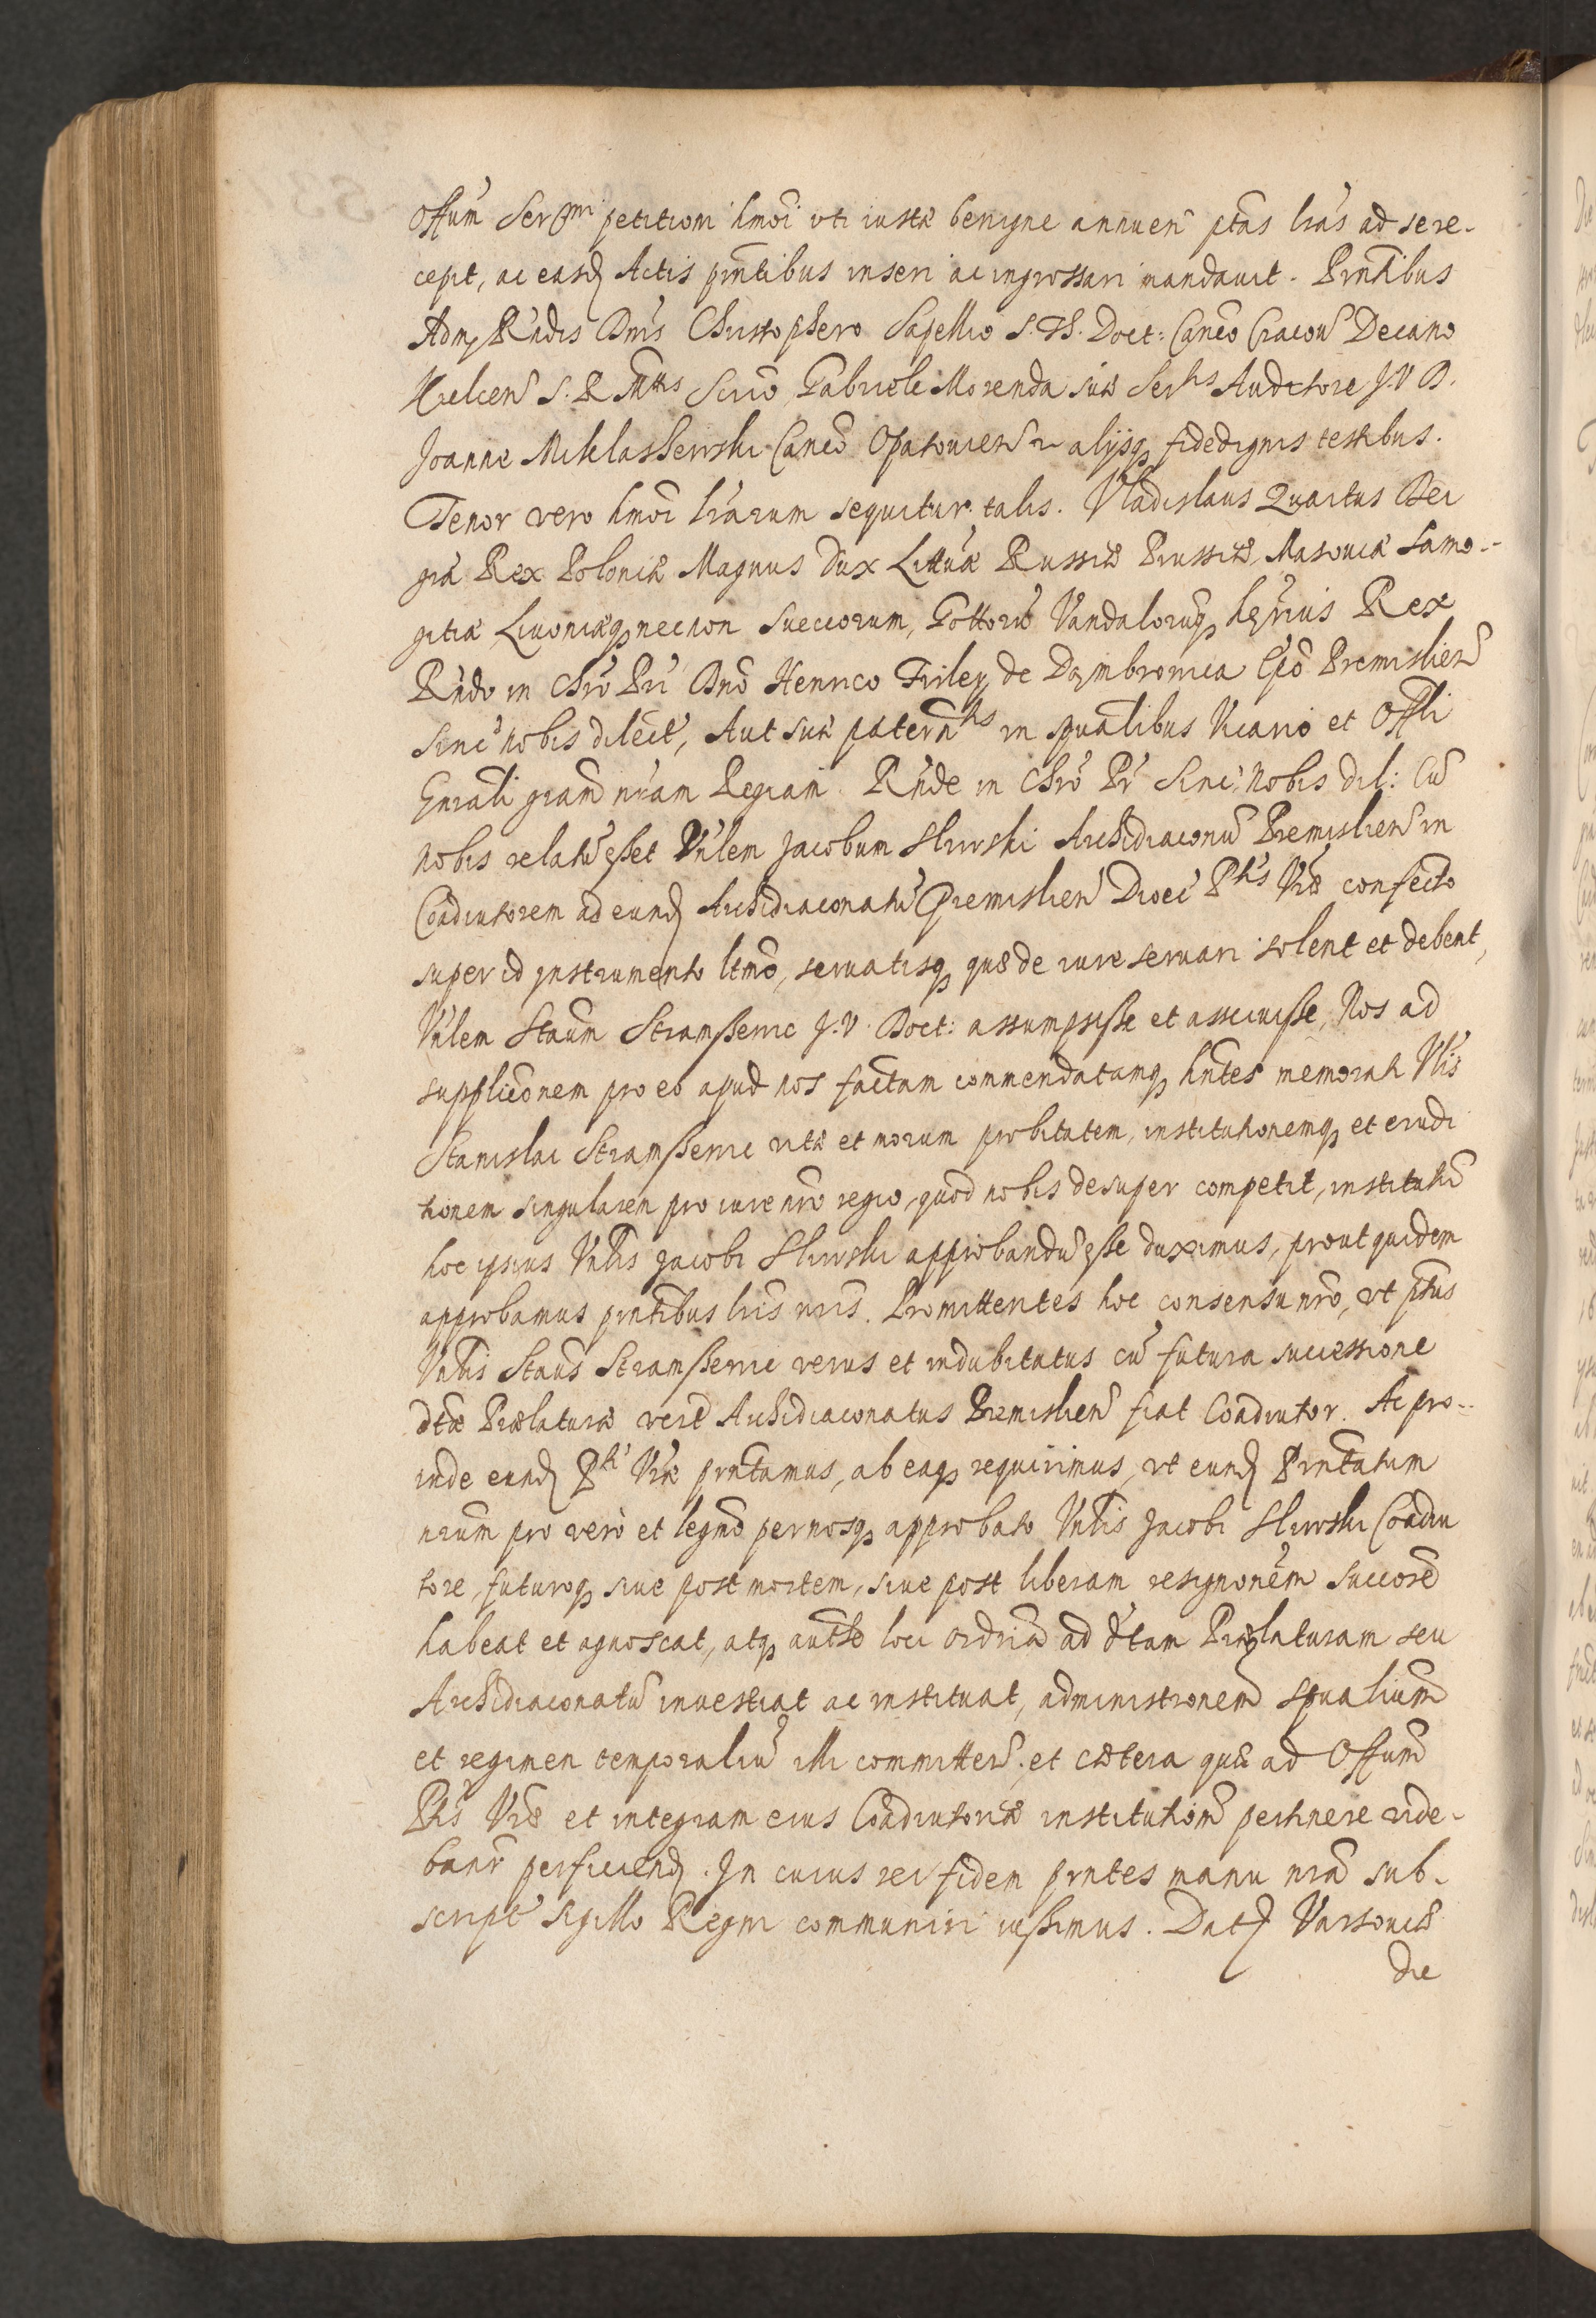 Offum Sermi petitioni hmoi uti iustæ benigne annuen ptas lras ad se re-
cepit, ac easd Actis pntibus inseri ac ingrossari mandauit. Pntibus
Adm Rndis Dnis Christophero Sapellio S. Th. Doct: Canco Cracou Decano
Kielcen S. R. Mttis Scrio, Gabriele Morenda suæ Sertis Auditore J. V. D.
Joanne Miklaszewski Canco Opatouien et alijsq fidedignis testibus.
Tenor vero hmoi lrarum sequitur talis. Vladislaus Quartus Dei
gra Rex Poloniæ Magnus Dux Littuæ Russiæ Prussiæ, Masouiæ Samo-
gitiæ Liuoniæq necnon Suecorum, Gottorū Vandalorūq hærius Rex
Rndo in Chro Pri Dno Henrico Firley de Dąmbrowica Epo Premislien
sinc nobis dilect, Aut suæ paternts in spualibus Vicario et Offli
Gnrali gram nram Regiam. Rnde in Chro Pr Sinc nobis dil: Cū
nobis relatū esset Vnlem Jacobum Sliwski Archidiaconū Premislien in
Coadiutorem ad eund Archidiaconatū Premislien Dioec Ptis Vræ confecto
super id Instrumento ltmo, seruatisq quæ de iure seruari solent et debent,
Vnlem Staum Stramszenic J. V. Doct: assumpsisse et assciuisse, Nos ad
suppliconem pro eo apud nos factam commendatamq hntes memorati Vlis
Stanislai Stramszenic vitæ et morum probitatem, institutionemq et erudi
tionem singularem pro iure nro regio, quod nobis desuper competit, institutū
hoc ipsius Vnlis Jacobi Sliwski approbandū esse duximus, prout quidem
approbamus pntibus lris nris. Promittentes hoc consensu nro, vt ptus
Vnlis Staus Stramszenic verus et indubitatus cū futura successione
dtæ Prælaturæ vere Archidiaconatus Premislien fiat Coadiutor. Ac pro-
inde eund Pti Vræ pntamus, ab eaq requirimus, vt eund Pntatum
nrum pro vero et legmo per nosq approbato Vnlis Jacobi Sliwski Coadiu
tore, futuroq siue post mortem, siue post liberam resignonem Succore
habeat et agnoscat, atq autte loci ordria ad dtam Prælaturam seu
Archidiaconatū inuestiat ac instituat, administronem spualium
et regimen temporaliū illi committen, et cætera quæ ad Offum
Ptis Vræ et integram eius Coadiutoriæ institution pertinere vide-
bantr perficiend. In cuius rei fidem pntes manu nra sub-
script Sigillo Regni communiri iussimus. Dat Varsouiæ
die